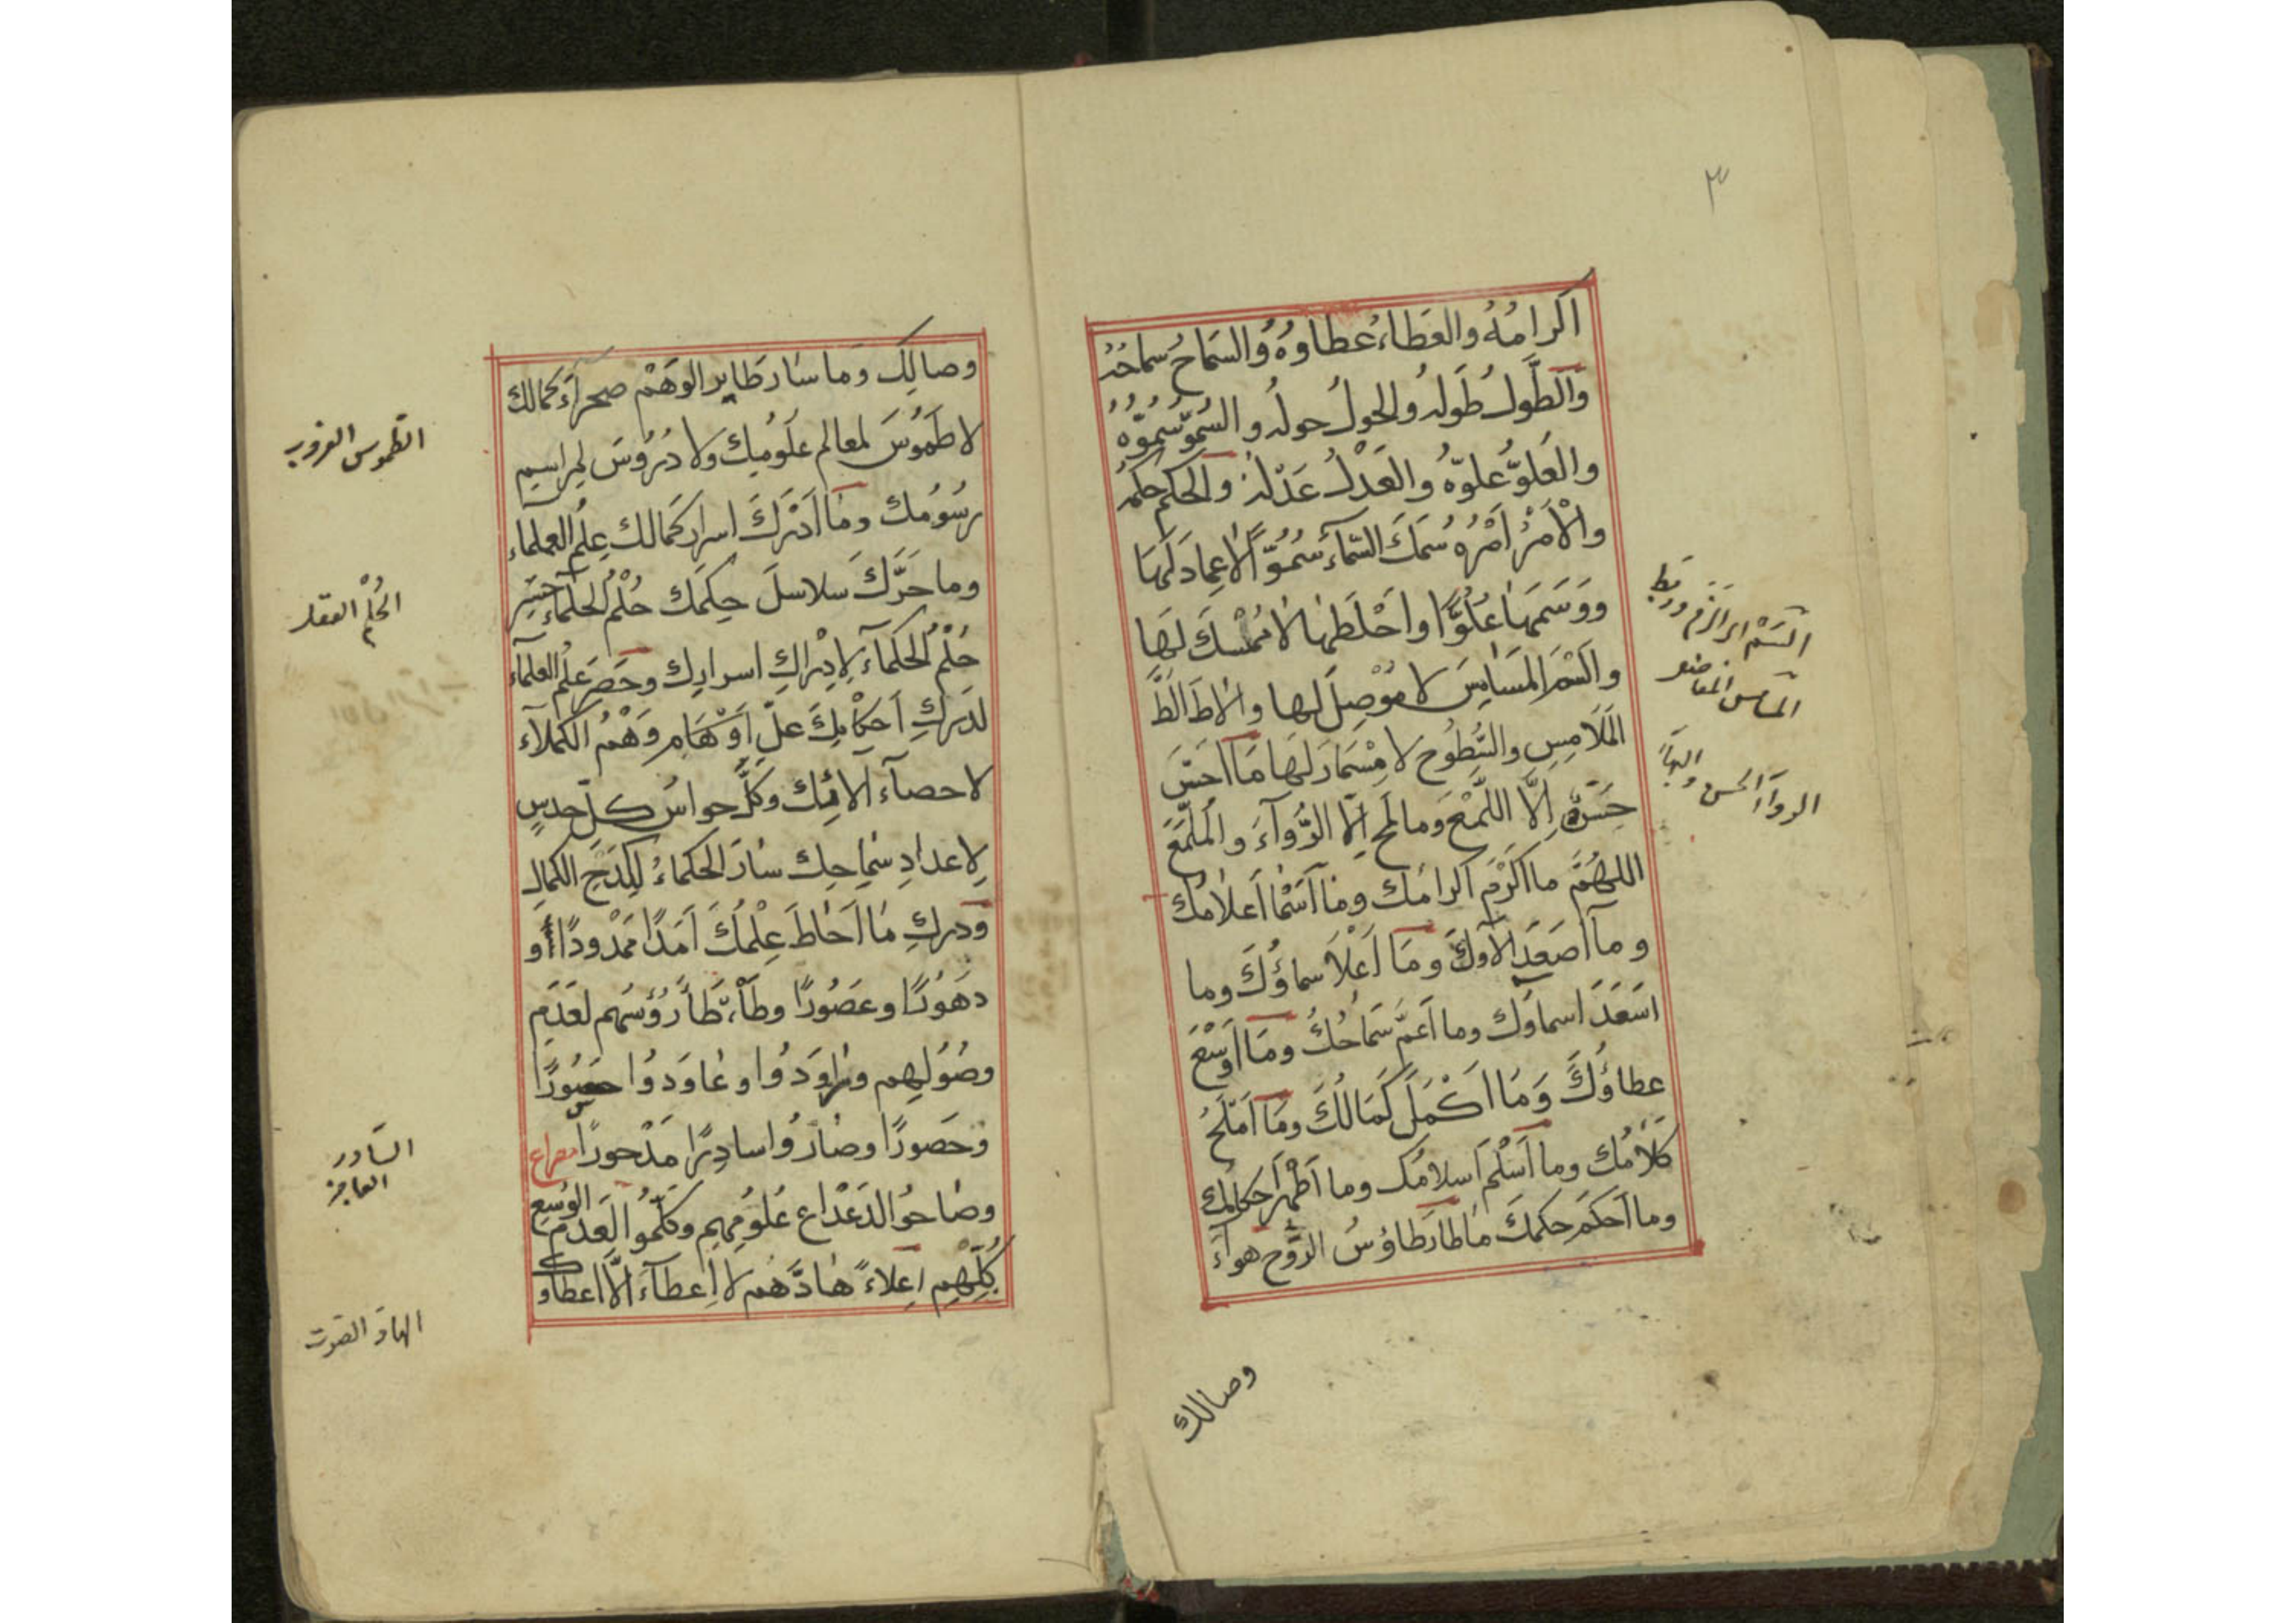 ٣
اكرامُهُ والعَطاءُ عطاوُهُ والسَماحُ سماحُهُ
وَالطَّولُ طَولهُ والحولُ حولهُ والسُّموّ سُمُوّهُ
والعُلوّ عُلوّهُ والعَدْلُ عَدْلهُ والحكم حكمهُ
والْأمْرُ أمْرُهُ سَمَكَ السّمآءَ سُمُوّاً لاعِمادَ لَهَا
ووَسَمَهَا عُلُوّاً واحْلَطها لا مُمْسكَ لهَا
المَسَايِسَ لا مُوْصِلَ لها
المَلَامِسِ والسُّطُوح لا مِسْمَارَ لَهَا مَا احَسّ
اِلَّا اللَّمْعَ وما لمح اِلّا الرُّوآءَ والمُلَمَّعَ
اللهُمَّ ما اكْرَمَ اكرامُك وما أسْمَا أعلامُك
وما أصعَدَ الآوكَ ومَا أعْلَا سماؤُكَ وما
اسَعَدَ اسماوَك وما اَعمَّ سَمَاحُكُ ومَا اوْسَعَ
عطاؤُكَ وَمَا اكْمَلَ كَمَالُكَ ومَا اَمْلَحُ
كلَامُك وما اَسْلَمَ اسلامُك وما أطْهرَ احكامُك
وما اَحكَمَ حكمكَ ما طارَ طاوُسُ الرَّوْحِ هوآءَ
السَّمْر
الروآءَ الحسن والبهآءِ
وصالك
وصالِك وَما سَارَ طَايِر الوَهْمِ صحرآءَ كمالك
لا طُمُوسَ لمعالم علُومِك ولا دُرُوْسَ لمراسِمِ
رسُومُك ومَا اَدْرَكَ اسرار كَمَالك عِلْمُ العلماءِ
وما حَرَّكَ سلاسلَ حِكَمك حُلْمُ الحلماءِ حَسِرَ
حُلْمُ الحُكمآءِ لِاِدْراكِ اسرارِك وحَصَرَ عِلْمُ العلمآءِ
لدَركِ اَحكَامِك علّ أَوْهَام وَهْمُ الكملآء
لاحصآء آلائِك وكَلَّ حواسُ كلّ حدسٍ
لِاعدادِ سَماحِك سارَ الحكماءُ لِكَدْحِ الكمالِ
ودركِ مَا اَحَاطَ عِلْمُكَ اَمَدًا مَمْدودًا او
دهَوُرًا وعَصُورًا وطَأْطَأَ رُؤسَهم لعَدَمِ
وصُوْلِهم ورَاوَدُوا وعَاوَدوُا حسُورًا
وحَصورًا وصارُوا سادِرًا مَدْحورًا مصراع
وصَاحُوا لدَعْدَاع عُلُومِهِم وكلّمُوا لِعَدمِ الوُسعِ
كلِّهِم اِعلاءً هَادَّهُم لا اِعطآءَ الّا اعطاوك
الطموس الغروب
الحُلْم العقل
السّادر
العاجز
الهادّ الصوت